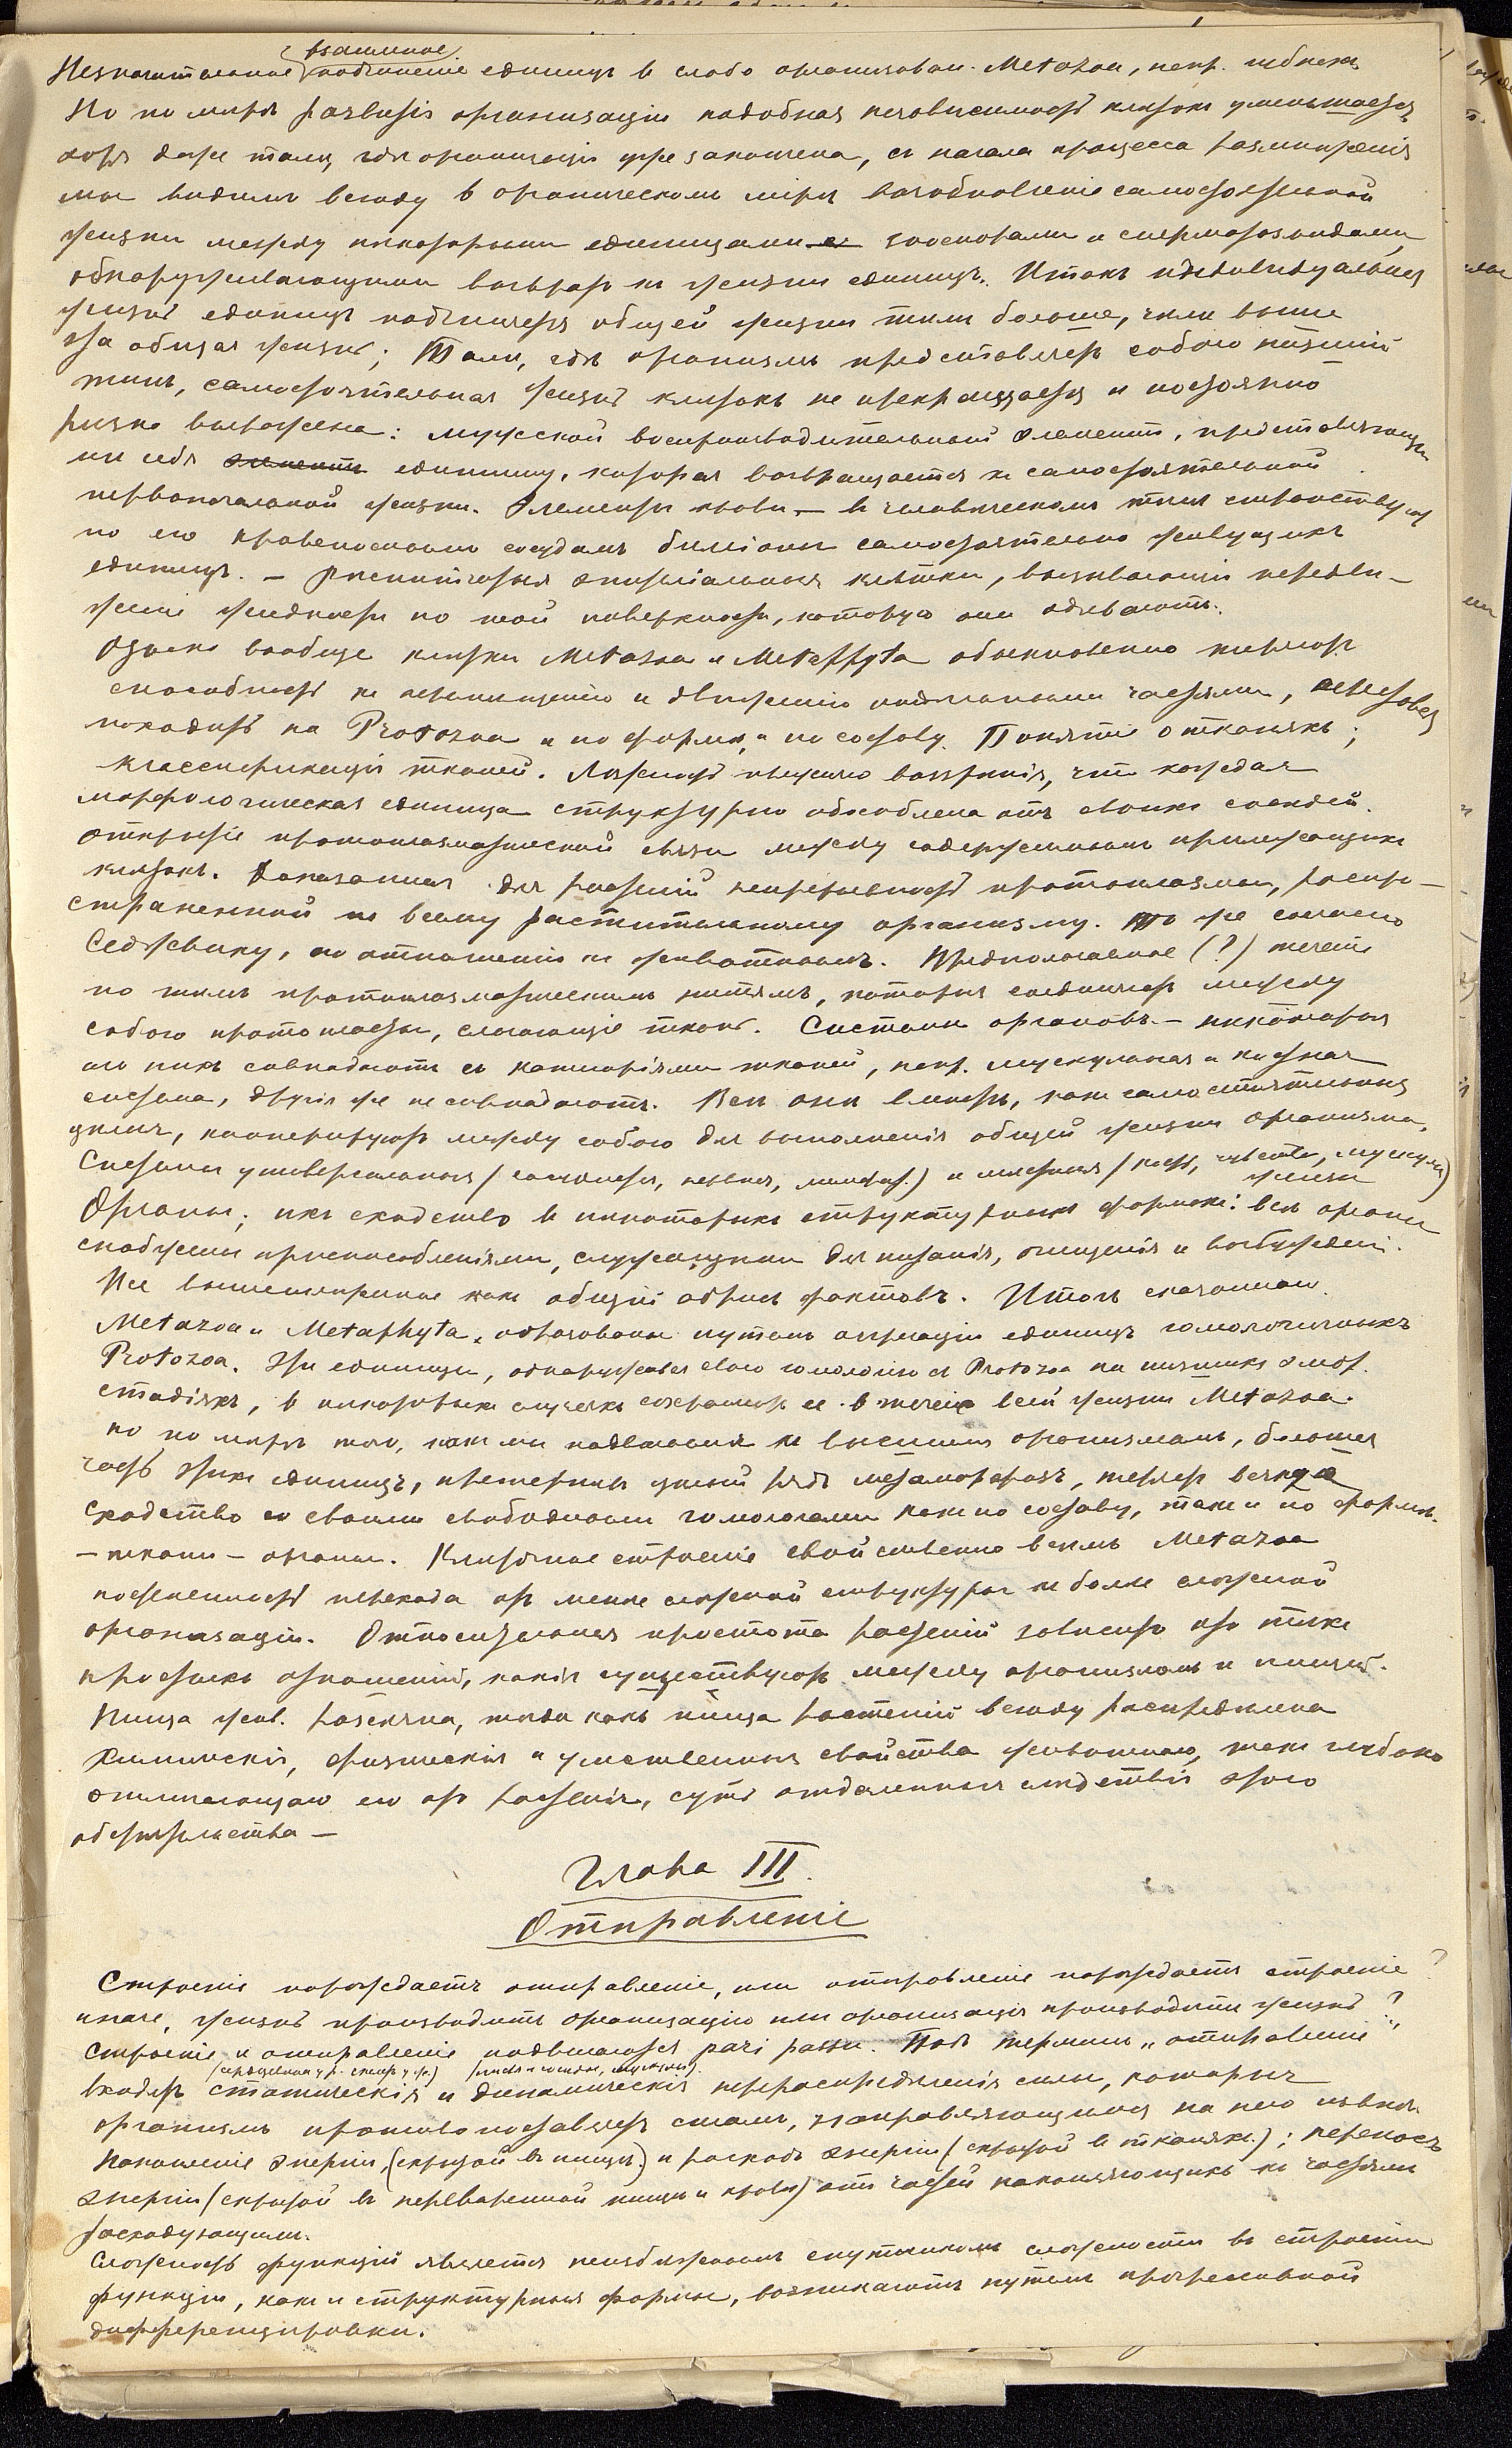 взаимное
Незначительное подчиненіе единицъ в слабо организован. Metazoa, напр. губкахъ
Но по мѣрѣ развитія организаціи подобная независимость клѣтокъ уменьшается,
хотя даже тамъ, гдѣ организація уже закончена, съ начала процесса размноженія
мы видимъ всюду в органическомъ мірѣ возобновленіе самостоятельной
жизни между некоторыми единицами зооспорами и сперматозоидами,
обнаруживающими возвратъ къ жизни единицъ. Итакъ индивидуальная
жизнь единицъ подчиняется общей жизни тѣмъ больше, чѣмъ выше
эта общая жизнь; Тамъ, гдѣ организмъ представляетъ собою низшій
типъ, самостоятельная жизнь клѣтокъ не прекращается и постоянно
рѣзко выражена: мужской воспроизводительный элементъ, представляющій
изъ себя элементъ единицу, которая возвращается къ самостоятельной
первоначальной жизни. Элементы крови — в человѣческомъ тѣлѣ странствуютъ
по его кровеноснымъ сосудамъ билліоны самостоятельно живущихъ
единицъ. — Рѣснитчатыя эпителіальныя клѣтки, вызывающія передви-
женіе жидкости по той поверхности, которую они одѣваютъ.
Однако вообще клѣтки Metazoa и Metaphyta обыкновенно теряютъ
способность къ перемѣщенію и движенію наружными частями, переставая
походить на Protozoa и по формѣ, и по составу. Понятіе о тканяхъ;
классификація тканей. Ложность прежняго воззрѣнія, что каждая
морфологическая единица структурно обособлена отъ своихъ сосѣдей.
Открытіе протоплазматической связи между содержимымъ прилежащихъ
клѣтокъ. Доказанная для растеній непрерывность протоплазмы, распро-
страненной по всему растительному организму. То же согласно
Седжвику, по отношенію къ животнымъ. Предполагаемое (?) теченіе
по тѣмъ протоплазматическимъ нитямъ, которыя соединяютъ между
собою протопласты, слагающіе ткань. Системы органовъ — нѣкоторыя
изъ нихъ совпадаютъ съ категоріями тканей, напр. мускульная и костная
система, другія же не совпадаютъ. Всѣ они вмѣстѣ, какъ самостоятельныя
цѣлыя, коопериратуютъ между собою для выполненія общей жизни организма.
Системы универсальныя (сосудистая, нервная, лимфат.) и мѣстныя (кости, чувства, мускулы)
железы
Органы; ихъ сходство в нѣкоторыхъ структурныхъ формахъ: всѣ органы
снабжены приспособленіями, служащими для питанія, очищенія и возбужденія.
Все вышеупомянутое какъ общій абрисъ фактовъ. Итогъ сказаннаго.
Metazoa и Metaphyta образованы путемъ агрегаціи единицъ гомологичныхъ
Protozoa. Эти единицы, обнаруживая свою гомологію съ Protozoa на низшихъ эмбр.
стадіяхъ, в нѣкоторыхъ случаяхъ сохраняютъ ее в теченіе всей жизни Metazoa.
но по мѣрѣ того, какъ мы подвигаемся къ высшимъ организмамъ, большая
часть этихъ единицъ, претерпѣвъ цѣлый рядъ метаморфозъ, теряетъ всякое
сходство со своими свободными гомологами какъ по составу, такъ и по формѣ.
— ткани — органы. Клѣточное строеніе свойственно всѣмъ Metazoa
постепенность перехода отъ менѣе сложной структуры къ болѣе сложной
организаціи. Относительная простота растеній зависитъ отъ тѣхъ
простыхъ отношеній, какія существуютъ между организмомъ и пищей.
Пища жив. разсѣяна, тогда какъ пища растеній всюду распредѣлена
Химическія, физическія и умственныя свойства животнаго, такъ глубоко
отличающаго его отъ растенія, суть отдаленныя слѣдствія этого
обстоятельства —
Глава III.
Отправленіе
Строеніе порождаетъ отправленіе, или отправленіе порождаетъ строеніе?
иначе, жизнь производитъ организацію или организація производитъ жизнь?
Строеніе и отправленіе подвигаются pari passu. Подъ терминъ „отправленіе"
входятъ статическія и динамическія перераспредѣленія силы, которыя
организмъ противопоставляетъ силамъ, направляющимся на него извнѣ.
Накопленіе энергіи (скрытой въ пищѣ) и расходъ энергіи (скрытой в тканяхъ.); переносъ
энергіи (скрытой въ переваренной пищѣ и крови) отъ частей накопляющихъ къ частямъ
расходующимъ.
Сложность функцій является неизбѣжнымъ спутникомъ сложности въ строеніи
функціи, какъ и структурныя формы, возникаютъ путемъ прогрессивной
дифференцировки.